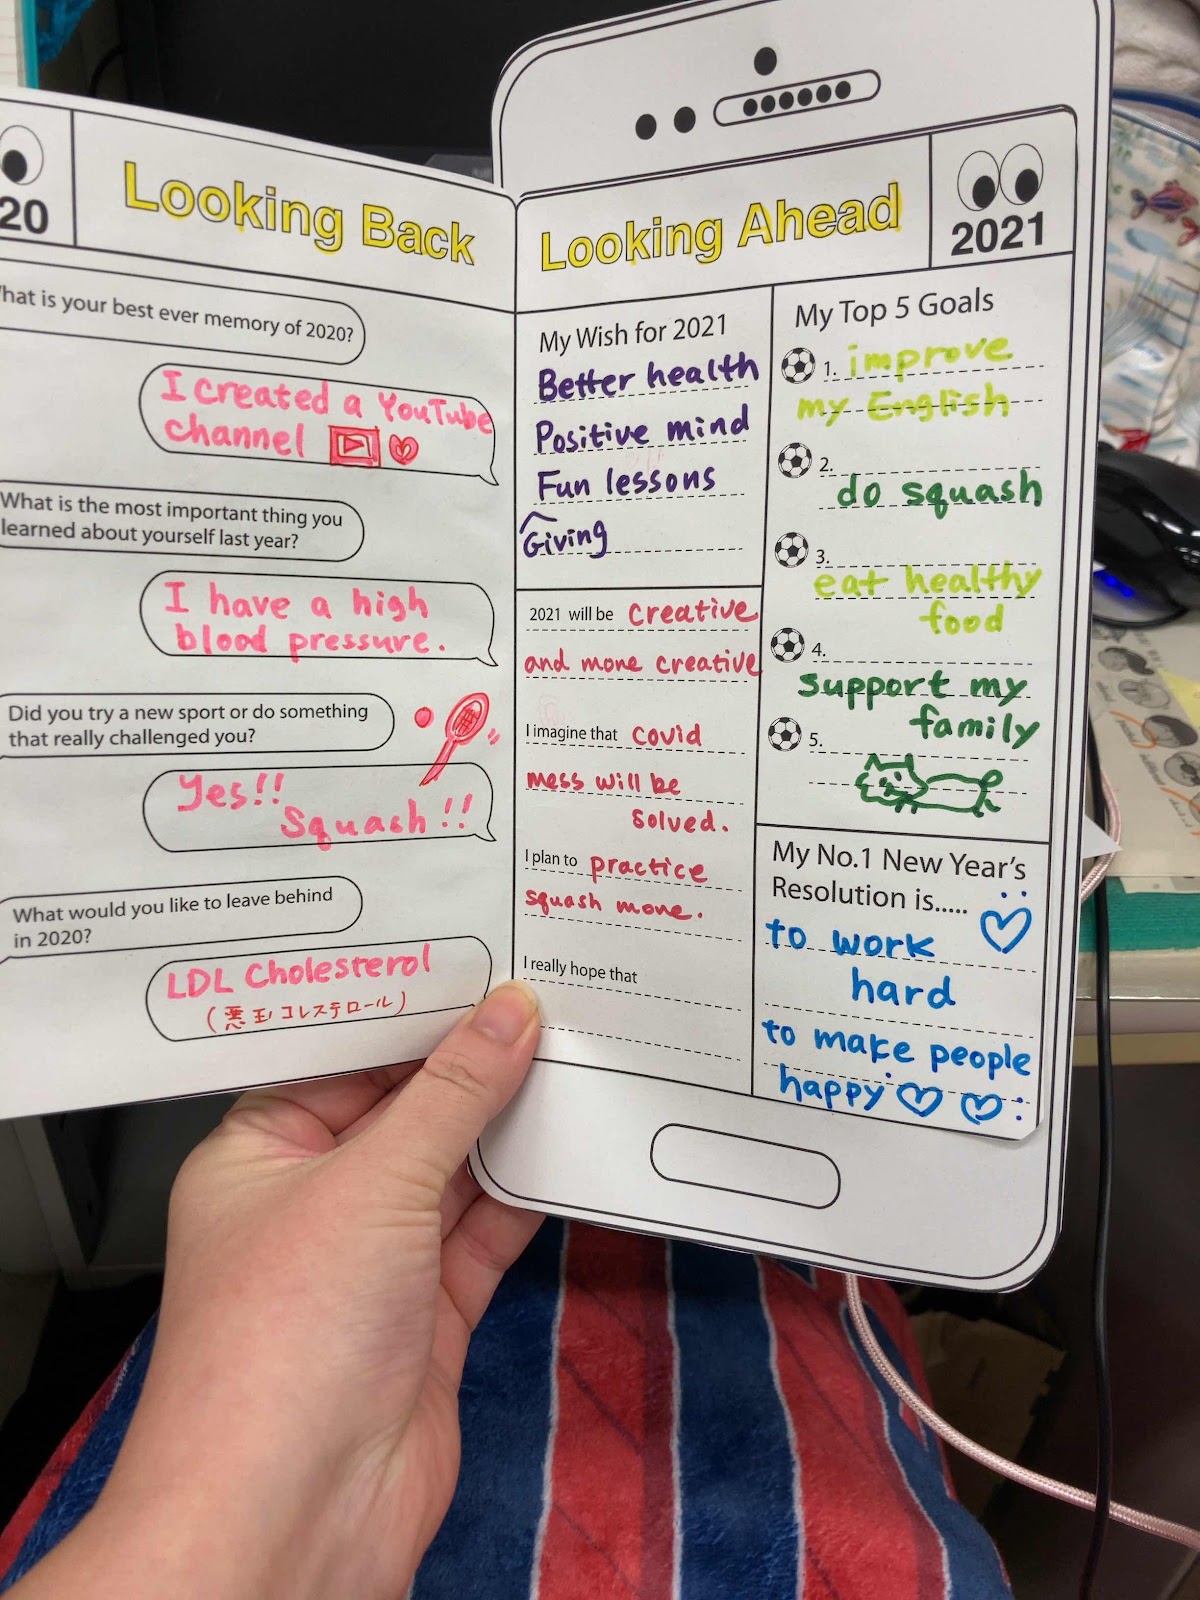 20
Looking Back
hat is your best ever memory of 2020?
I created a YouTube
channel
What is the most important thing you
learned about yourself last year?
I have a high
blood pressure.
Did you try a new sport or do something
that really challenged you?
Yes!!
Squash!!
What would you like to leave behind
in 2020?
LDL Cholesterol
(悪玉コレステロール)
Looking Ahead
2021
My Wish for 2021
Better health
Positive mind
Fun lessons
Giving
2021 will be creative
and more creative
I imagine that covid
mess will be
solved.
I plan to practice
squash more.
I really hope that
My Top 5 Goals
1. improve
my English
2.
do squash
3.
eat healthy
food
4.
support my
family
5.
My No.1 New Year's
Resolution is.....
to work
hard
to make people
happy